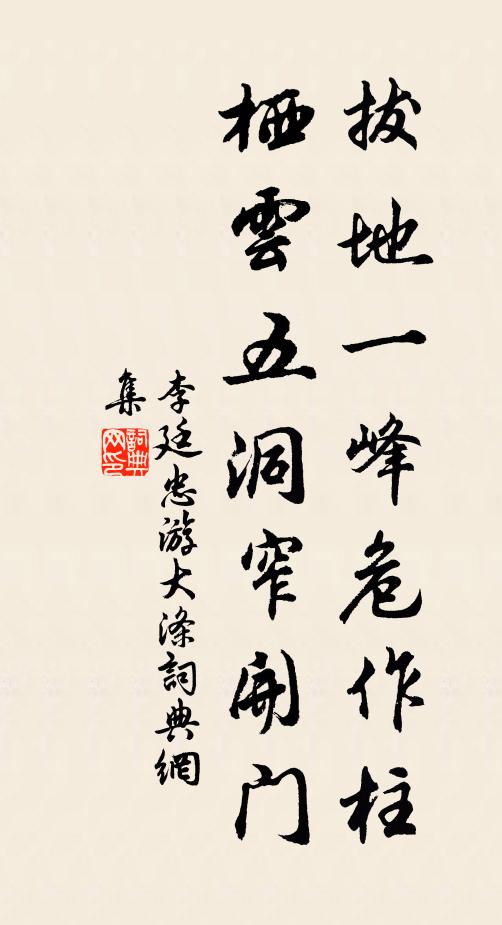 拔地一峰危作柱
栖雲五洞窄開門
李廷忠游大滌詞典網
集
詞典
网印